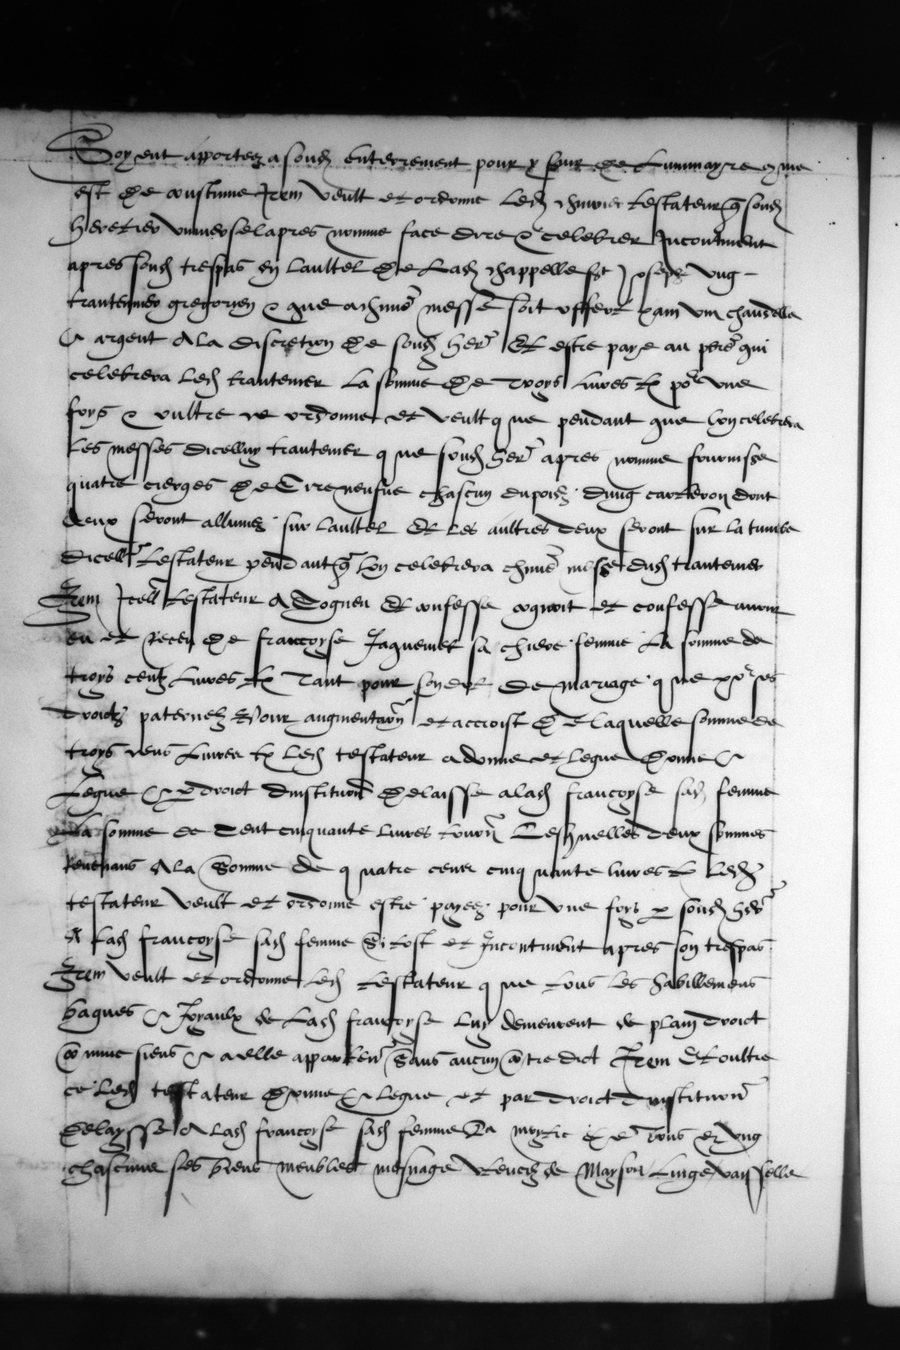 Soyent apportez a soud enterrement pour y de lummayre comme
est de coustume Item veult et ordonne led testateur q soud
heretier universel apres nomme face dire & celebrer incontinent
apres soud trespas en laultel de lad chappelle st Joseph ung
trantenier gregorien & que a messe soit offert pain vin chandelle
& argent a la discretion de soud her Et estre paye au qui
celebrera led trantenier la somme de troys livres tz por une
foys & oultre ce ordonne et veult que pendant que lon celebrera
les messes dicelluy trantenier que soud her apres nomme fournisse
quatre cierges de cire neufve chascun du poidz dung carteron dont
deux seront allumez sur laultel et les aultres deux seront sur la tumbe
dicell testateur pendant q lon celebrera messe dud trantenier
Item icell testateur a cogneu et confesse cognoit et confesse avoir
eu et receu de francoyse Jaquemet sa chiere femme la somme de
troys centz livres tz tant pour son dot de mariage que
droictz paternelz et pour augmentaon et accroist de laquelle somme de
troys cens livres tz led testateur a donne et legue donne &
legue & p droict dinstitution delaisse a lad francoyse sad femme
la somme de cent cinquante livres tourn lesquelles deux sommes
revenans a la somme de quatre cens cinquante livres tz led
testateur veult et ordonne estre payez pour une foys p soud her
a lad francoyse sad femme si tost et incontinent apres son trespas
Item veult et ordonne led testateur que tous les habillemens
bagues & joyaulx de lad francoyse luy demeurent de plain droict
comme siens & a elle apparten sans aucun contredict Item et oultre
ce led testateur donne & legue et par droict dinstitution
delaysse a lad francoyse sad femme la moytie de tous et ung
chascune ses biens meubles mesnage de mayson linge vaysselle